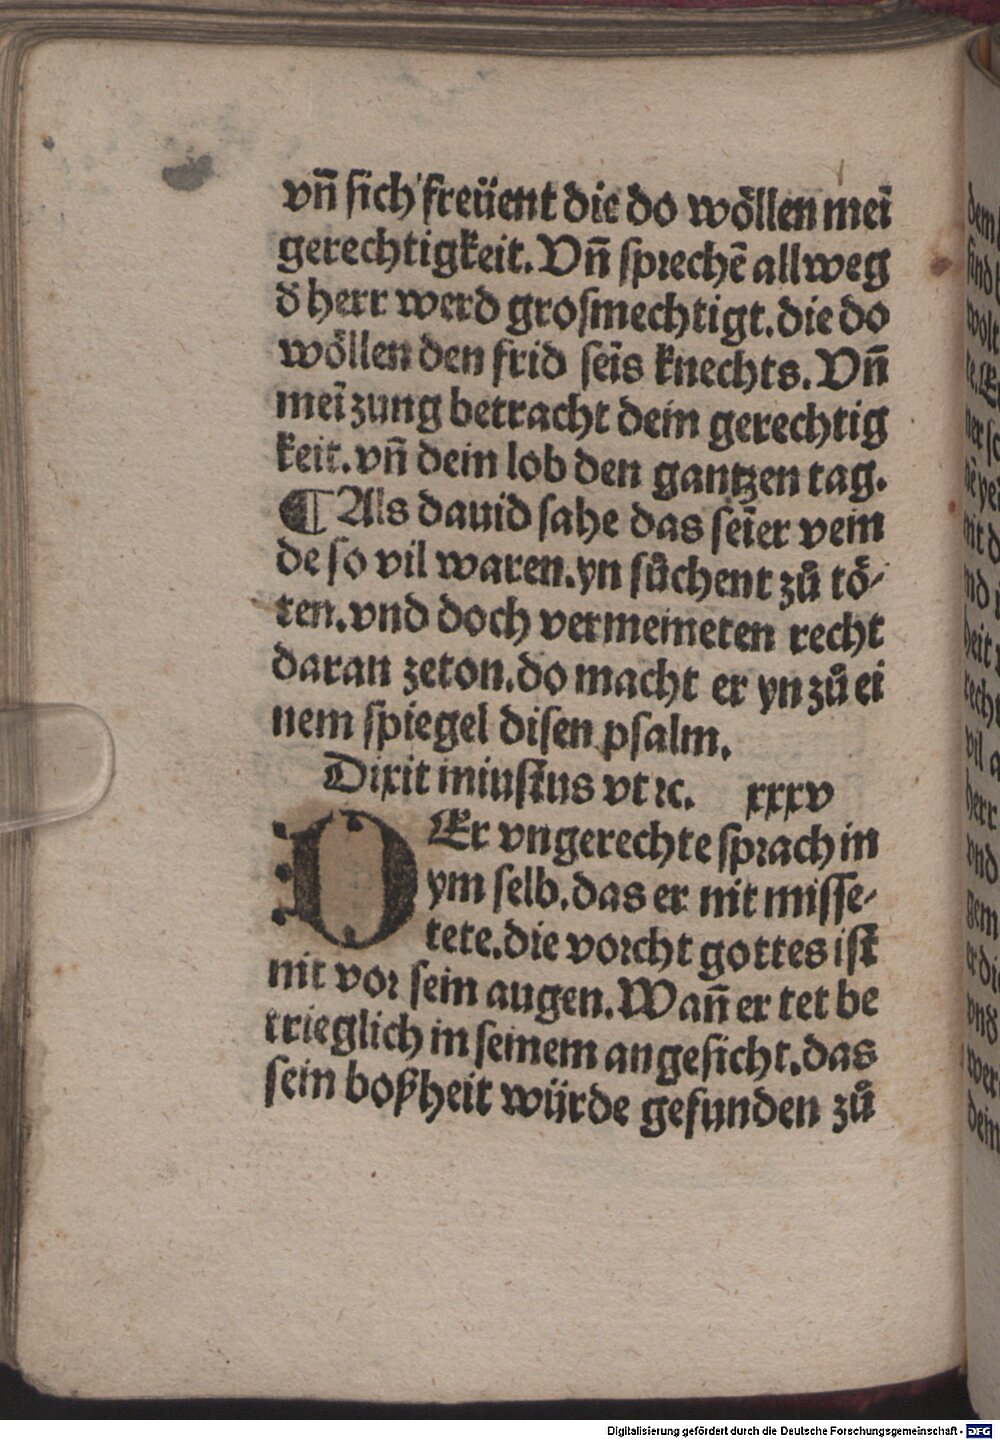 vn̄ sich freüent die do wöllen meī
gerechtigkeit. Vn̄ sprechē allweg
d̄ herr werd grosmechtigt. die do
wöllen den frid seīs knechts. Vn̄
meī zung betracht dein gerechtig
keit. vn̄ dein lob den gantzen tag.
¶ Als dauid sahe das seīer vein
de so vil waren. yn sůchent zů tö-
ten. vnd doch vermeineten recht
daran zeton. do macht er yn zů ei
nem spiegel disen psalm.
Dixit iniustus vt ⁊c. xxxv
DEr vngerechte sprach in
ym selb. das er nit misse-
tete. die vorcht gottes ist
nit vor sein augen. Wan̄ er tet be
trieglich in seinem angesicht. das
sein boßheit würde gefunden zů
Digitalisierung gefördert durch die Deutsche Forschungsgemeinschaft - DFG